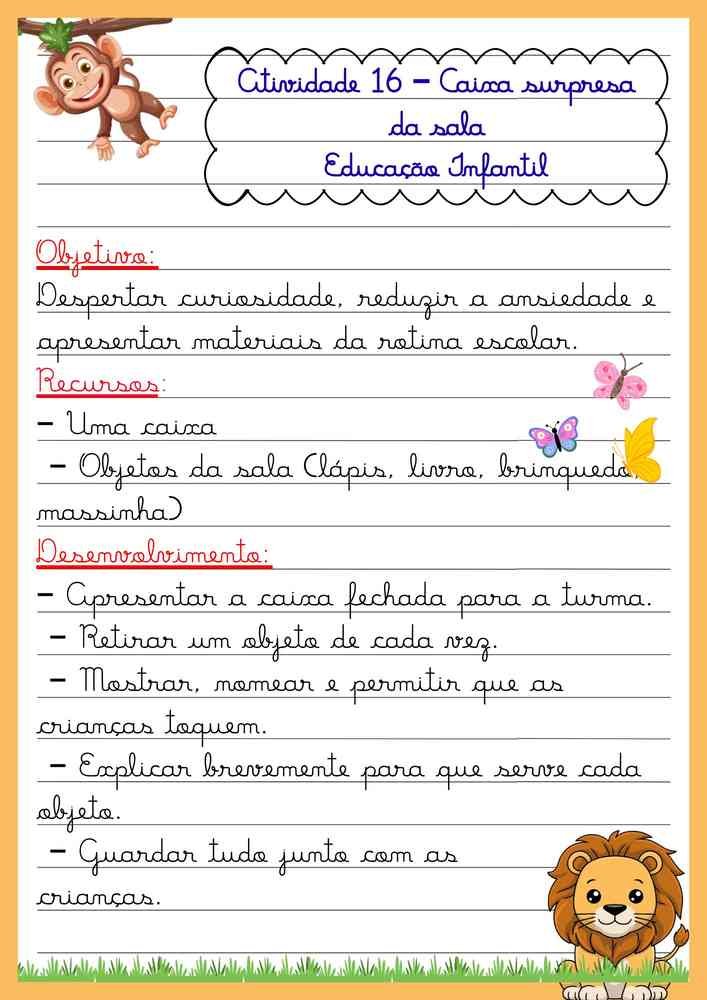 Atividade 16 – Caixa surpresa
da sala
Educação Infantil
Objetivo:
Despertar curiosidade, reduzir a ansiedade e
apresentar materiais da rotina escolar.
Recursos:
– Uma caixa
– Objetos da sala (lápis, livro, brinquedo,
massinha)
Desenvolvimento:
– Apresentar a caixa fechada para a turma.
– Retirar um objeto de cada vez.
– Mostrar, nomear e permitir que as
crianças toquem.
– Explicar brevemente para que serve cada
objeto.
– Guardar tudo junto com as
crianças.